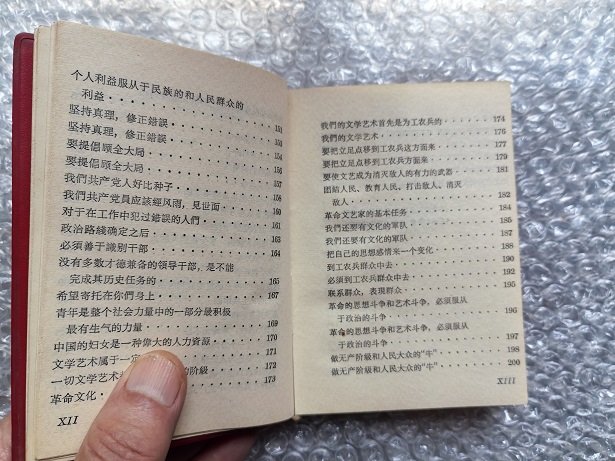 个人利益服从于民族的和人民群众的
利益 · · · · · · · · · · · · 151
坚持真理，修正錯誤 · · · · · · · · 153
坚持真理，修正錯誤 · · · · · · · · 154
要提倡顾全大局 · · · · · · · · · · 156
要提倡顾全大局 · · · · · · · · · · 157
我們共产党人好比种子 · · · · · · · 158
我們共产党員应該經风雨，見世面 · · · 160
对于在工作中犯过錯誤的人們 · · · · · 161
政治路綫确定之后 · · · · · · · · · 163
必須善于識别干部 · · · · · · · · · 164
没有多数才德兼备的領导干部，是不能
完成其历史任务的 · · · · · · · · 165
希望寄托在你們身上 · · · · · · · · 167
青年是整个社会力量中的一部分最积极
最有生气的力量 · · · · · · · · · 169
中国的妇女是一种偉大的人力資源 · · · 170
文学艺术属于一定 · · · · · 171
一切文学艺术 的阶級 · · · · 172
革命文化 · · · · · · · 173
XII
我們的文学艺术首先是为工农兵的 · · · 174
我們的文学艺术 · · · · · · · · · · 176
要把立足点移到工农兵这方面来 · · · · 177
要把立足点移到工农兵方面来 · · · · · 179
要使文艺成为消灭敌人的有力的武器 · · 181
团結人民、教育人民、打击敌人、消灭
敌人 · · · · · · · · · · · · · 182
革命文艺家的基本任务 · · · · · · · 184
我們还要有文化的軍队 · · · · · · · 185
我們还要有文化的軍队 · · · · · · · 187
把自己的思想感情来一个变化 · · · · · 188
到工农兵群众中去 · · · · · · · · · 190
必須到工农兵群众中去 · · · · · · · 192
联系群众，表現群众 · · · · · · · · 195
革命的思想斗争和艺术斗争，必須服从
于政治的斗争 · · · · · · · · · · 196
革命的思想斗争和艺术斗争，必須服从
于政治的斗争 · · · · · · · · · · 197
做无产阶級和人民大众的“牛” · · · · · 198
做无产阶級和人民大众的“牛” · · · · · 200
XIII